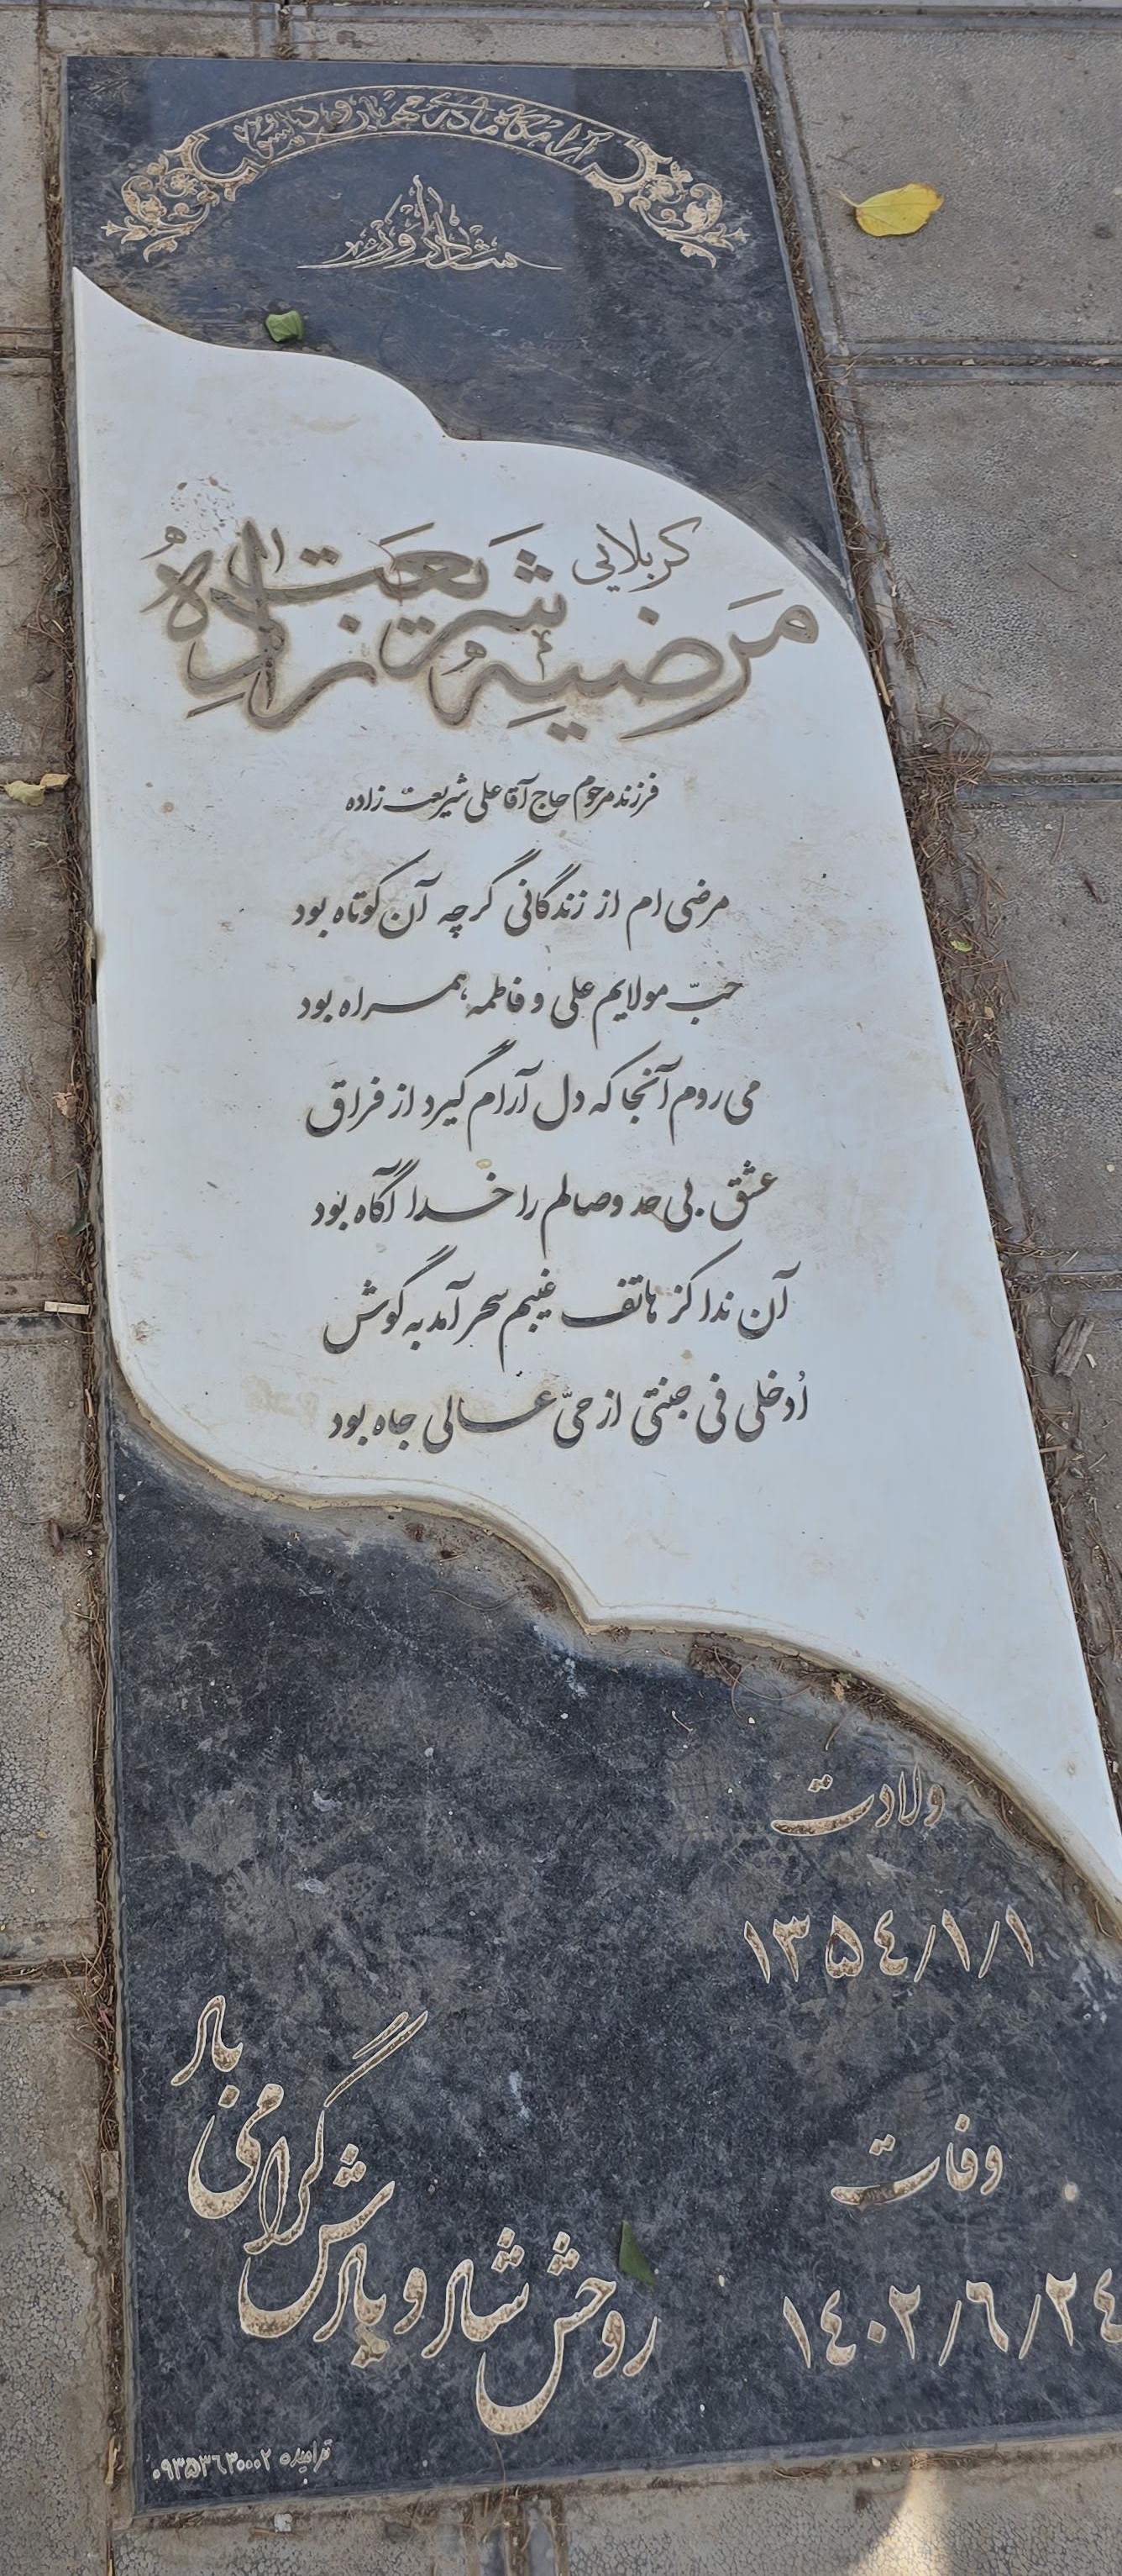 آرامگاه مادری مهربان و دلسوز
شادروان
کربلایی
مرضیه شریعت زاده
فرزند مرحوم حاج آقا علی شریعت زاده
مرضی ام از زندگانی گرچه آن کوتاه بود
حبّ مولایم علی و فاطمه همراه بود
می روم آنجا که دل آرام گیرد از فراق
عشق بی حد وصالم را خدا آگاه بود
آن ندا کز هاتف غیبم سحر آمد به گوش
اُدخلی فی جنتی از حیّ عالی جاه بود
ولادت
۱۳۵٤/۱/۱
وفات
۱٤۰۲/٦/۲٤
روحش شاد و یادش گرامی باد